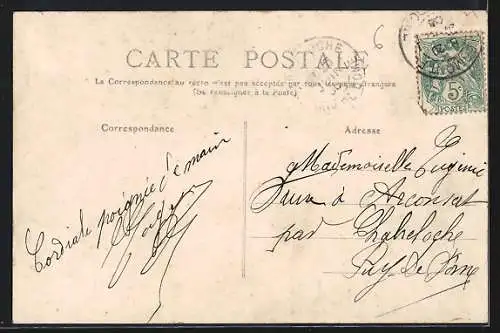 CARTE POSTALE
La Correspondance au recto n'est pas acceptée par tous les pays étrangers
(Se renseigner à la Poste)
Correspondance
Adresse
6
5c
POSTES
Cordiale poignée de main
Mademoiselle Eugénie
à Arconsat
par Chabreloche
Puy de Dôme